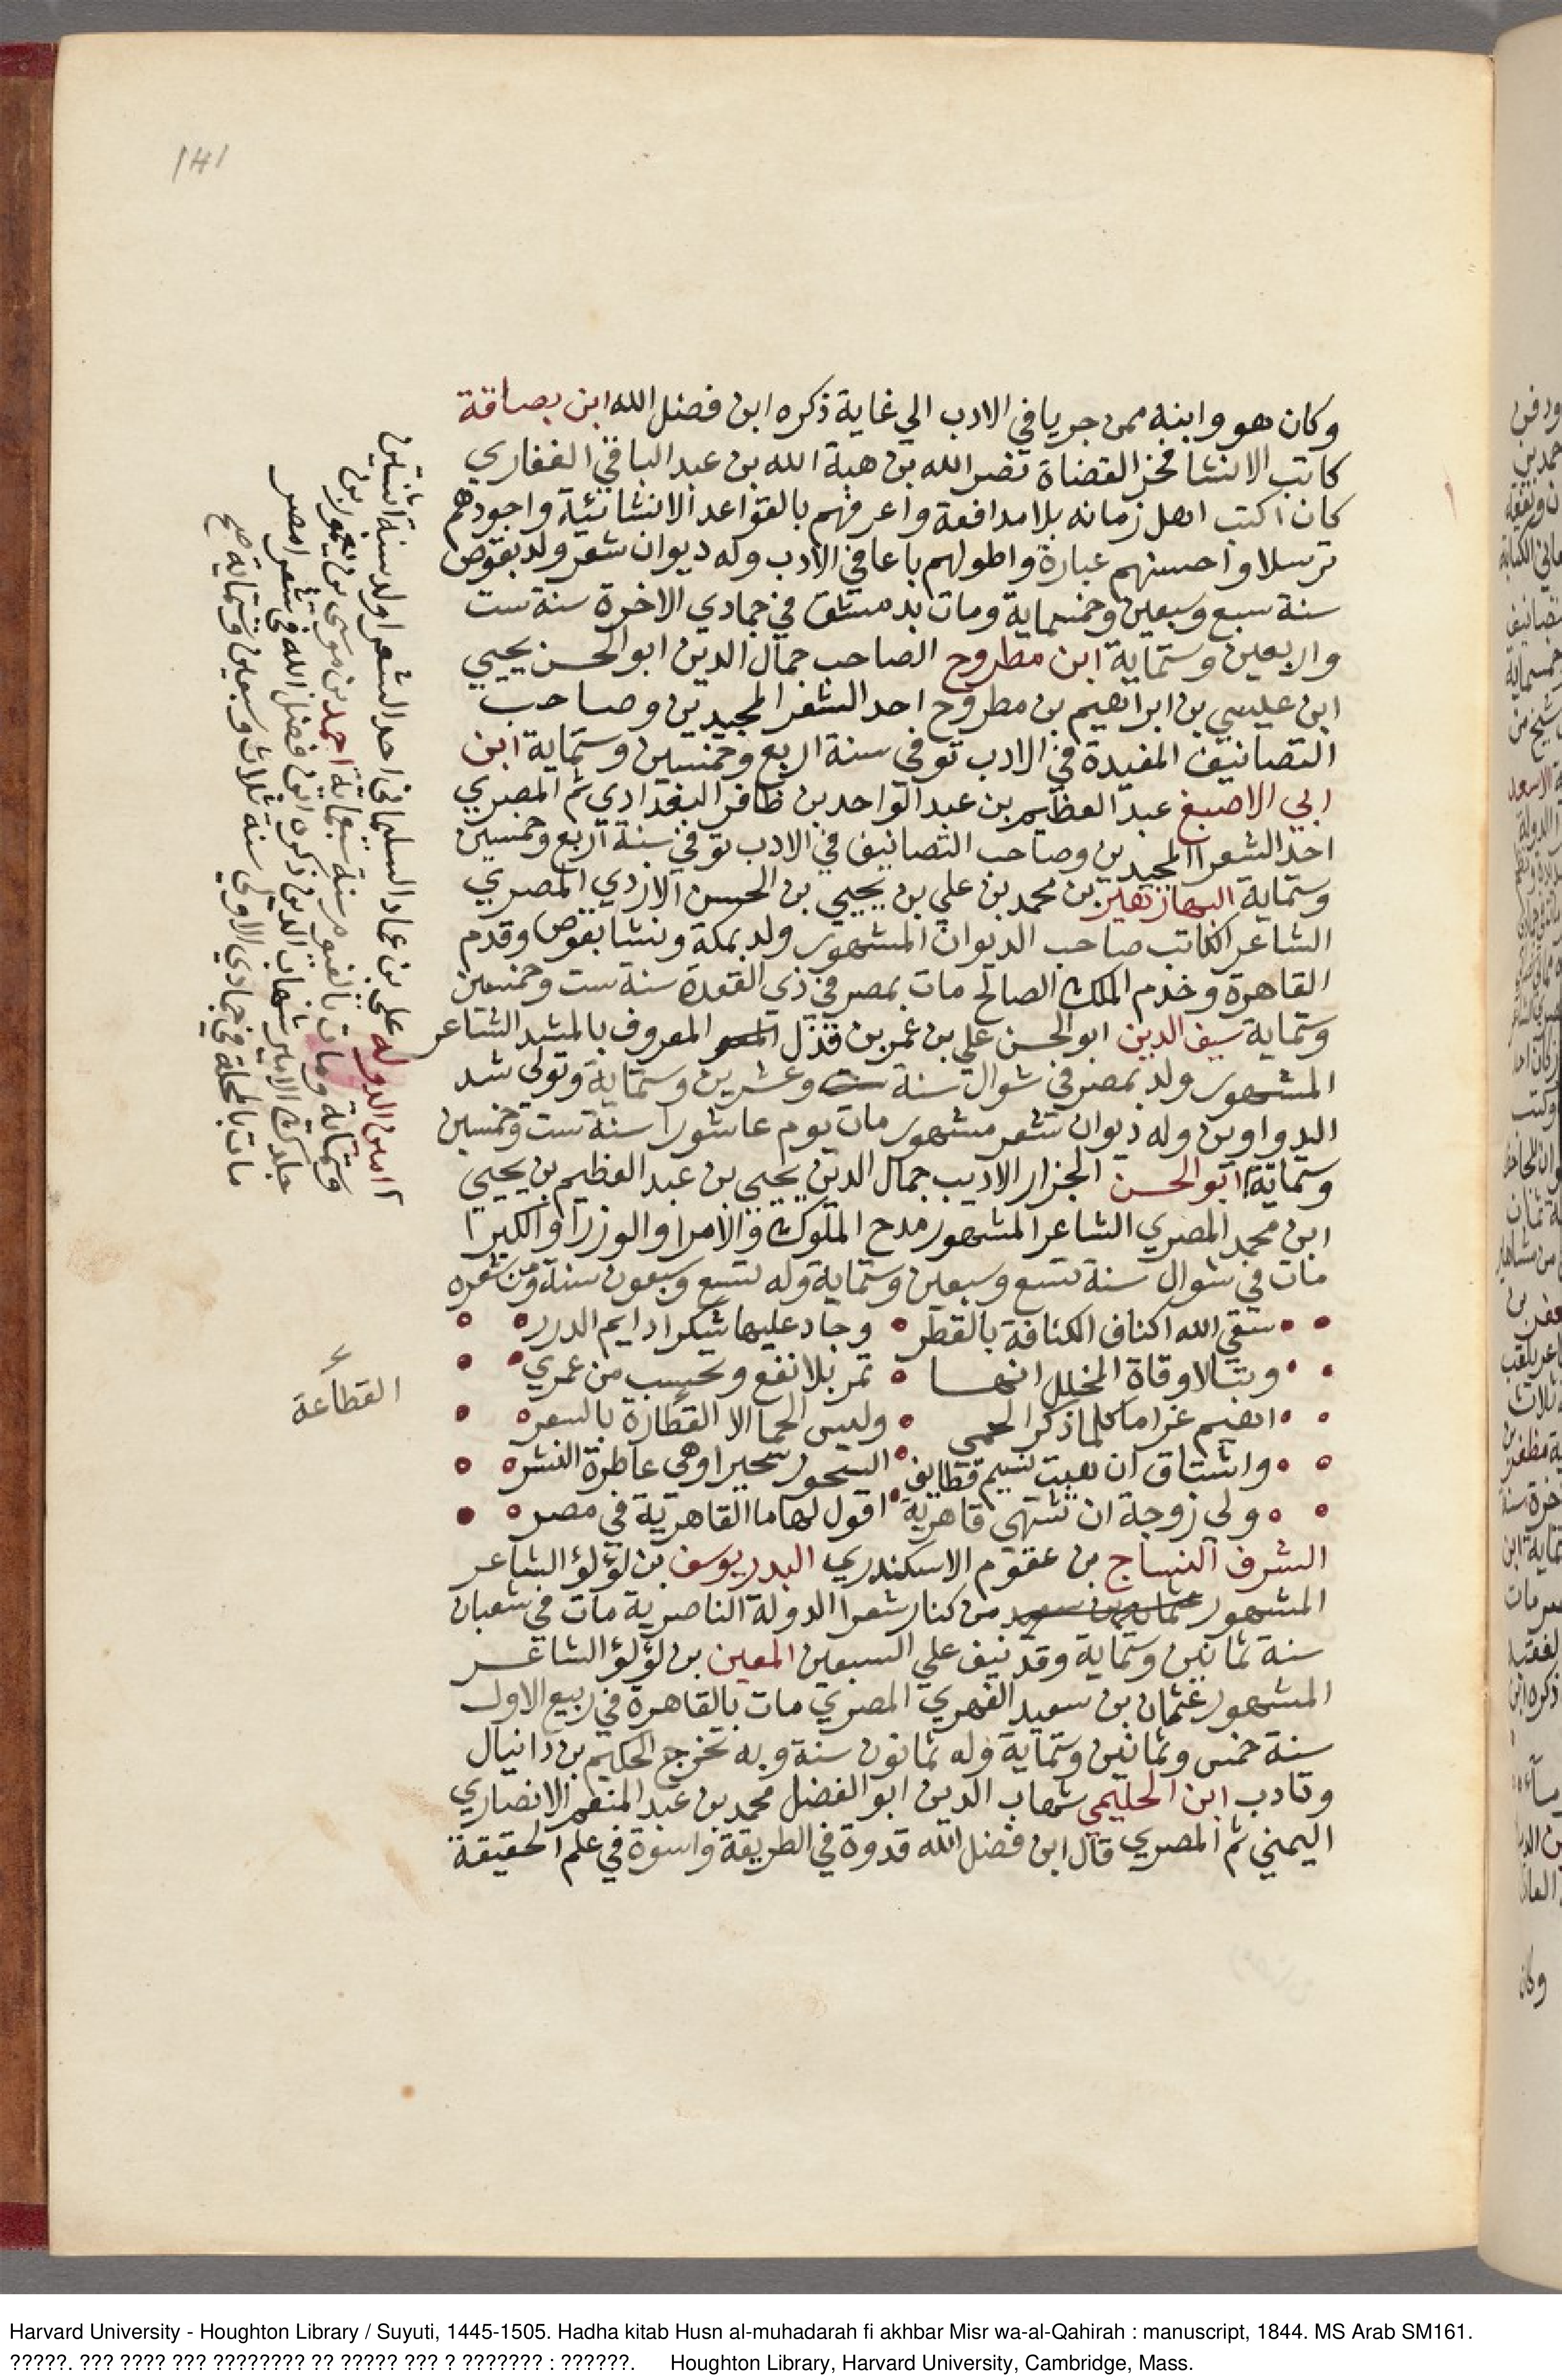 141
وكان هو وابنه ممن جريا في الادب الي غاية ذكره ابن فضل الله ابن بصاقة
كاتب الانشا فخر القضاة نصر الله بن هبة الله بن عبد الباقي الغفاري
كان اكتب اهل زمانه بلا مدافعة واعرفهم بالقواعد الانشائية واجودهم
ترسلا واحسنهم عبارة واطولهم باعا في الادب وله ديوان شعر ولد بقوص
سنة سبع وسبعين وخمسماية ومات بدمشق في جمادي الاخرة سنة ست
واربعين وستماية ابن مطروح الصاحب جمال الدين ابو الحسن يحيي
ابن عيسي بن ابراهيم بن مطروح احد الشعرا المجيدين وصاحب
التصانيف المفيدة في الادب توفي سنة اربع وخمسين وستماية ابن
ابي الاصبع عبد العظيم بن عبد الواحد بن ظافر البغدادي ثم المصري
احد الشعرا المجيدين وصاحب التصانيف في الادب توفي سنة اربع وخمسين
وستماية البها زهير بن محمد بن علي بن يحيي بن الحسن الازدي المصري
الشاعر الكاتب صاحب الديوان المشهور ولد بمكة ونشا بقوص وقدم
القاهرة وخدم الملك الصالح مات بمصر في ذي القعدة سنة ست وخمسين
وستماية سيف الدين ابو الحسن علي بن عمر بن قزل المعروف بالمشد الشاعر
المشهور ولد بمصر في شوال سنة ست وعشرين وستماية وتولي شد
الدواوين وله ديوان شعر مشهور مات يوم عاشورا سنة ست وخمسين
وستماية ابو الحسن الجزار الاديب جمال الدين يحيي بن عبد العظيم بن يحيي
ابن محمد المصري الشاعر المشهور مدح الملوك والامرا والوزرا والكبرا
مات في شوال سنة تسع وسبعين وستماية وله تسع وسبعون سنة ومن شعره
سقي الله اكناف الكنافة بالقطر وجاد عليها شكرا دايم الدرر
وتبا لاوقاة المخلل انها تمر بلا نفع وتحسب من عمري
اهيم غراما كلما ذكر الحمي وليس الحما الا القطارة بالسعر
واشتاق ان هبت نسيم قطايف السحور سحيرا وهي عاطرة النشر
ولي زوجة ان تشتهي قاهرية اقول لها ما القاهرية في مصر
الشرف النساج بن عقوم الاسكندري البدر يوسف بن لؤلؤ الشاعر
المشهور عثمان بن سعيد من كبار شعرا الدولة الناصرية مات في شعبان
سنة ثمانين وستماية وقد نيف علي السبعين المعين بن لؤلؤ الشاعر
المشهور عثمان بن سعيد الفهري المصري مات بالقاهرة في ربيع الاول
سنة خمس وثمانين وستماية وله ثمانون سنة وبه تخرج الحكيم بن دانيال
وتادب ابن الحليمي شهاب الدين ابو الفضل محمد بن عبد المنعم الانصاري
اليمني ثم المصري قال ابن فضل الله قدوة في الطريقة واسوة في علم الحقيقة
امين الدولة علي بن عماد السليماني احد الشعرا ولد سنة اثنتين
وستماية ومات بالفيوم سنة سبعماية احمد بن موسي بن يغمور بن
جلدك الامير شهاب الدين ذكره ابن فضل الله في شعرا مصر
مات بالمحلة في جمادي الاولي سنة ثلاث وسبعين وستماية صح
القطاعة
Harvard University - Houghton Library / Suyuti, 1445-1505. Hadha kitab Husn al-muhadarah fi akhbar Misr wa-al-Qahirah : manuscript, 1844. MS Arab SM161.
?????. ??? ???? ??? ???????? ?? ????? ??? ? ??????? : ??????. Houghton Library, Harvard University, Cambridge, Mass.